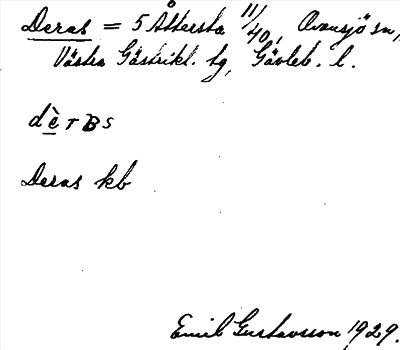 Deras = 5 Åttersta 11/40, Ovansjö sn,
Västra Gästrikl. tg, Gävleb. l.
dèrBs
Deras kb
Emil Gustavsson 1929.